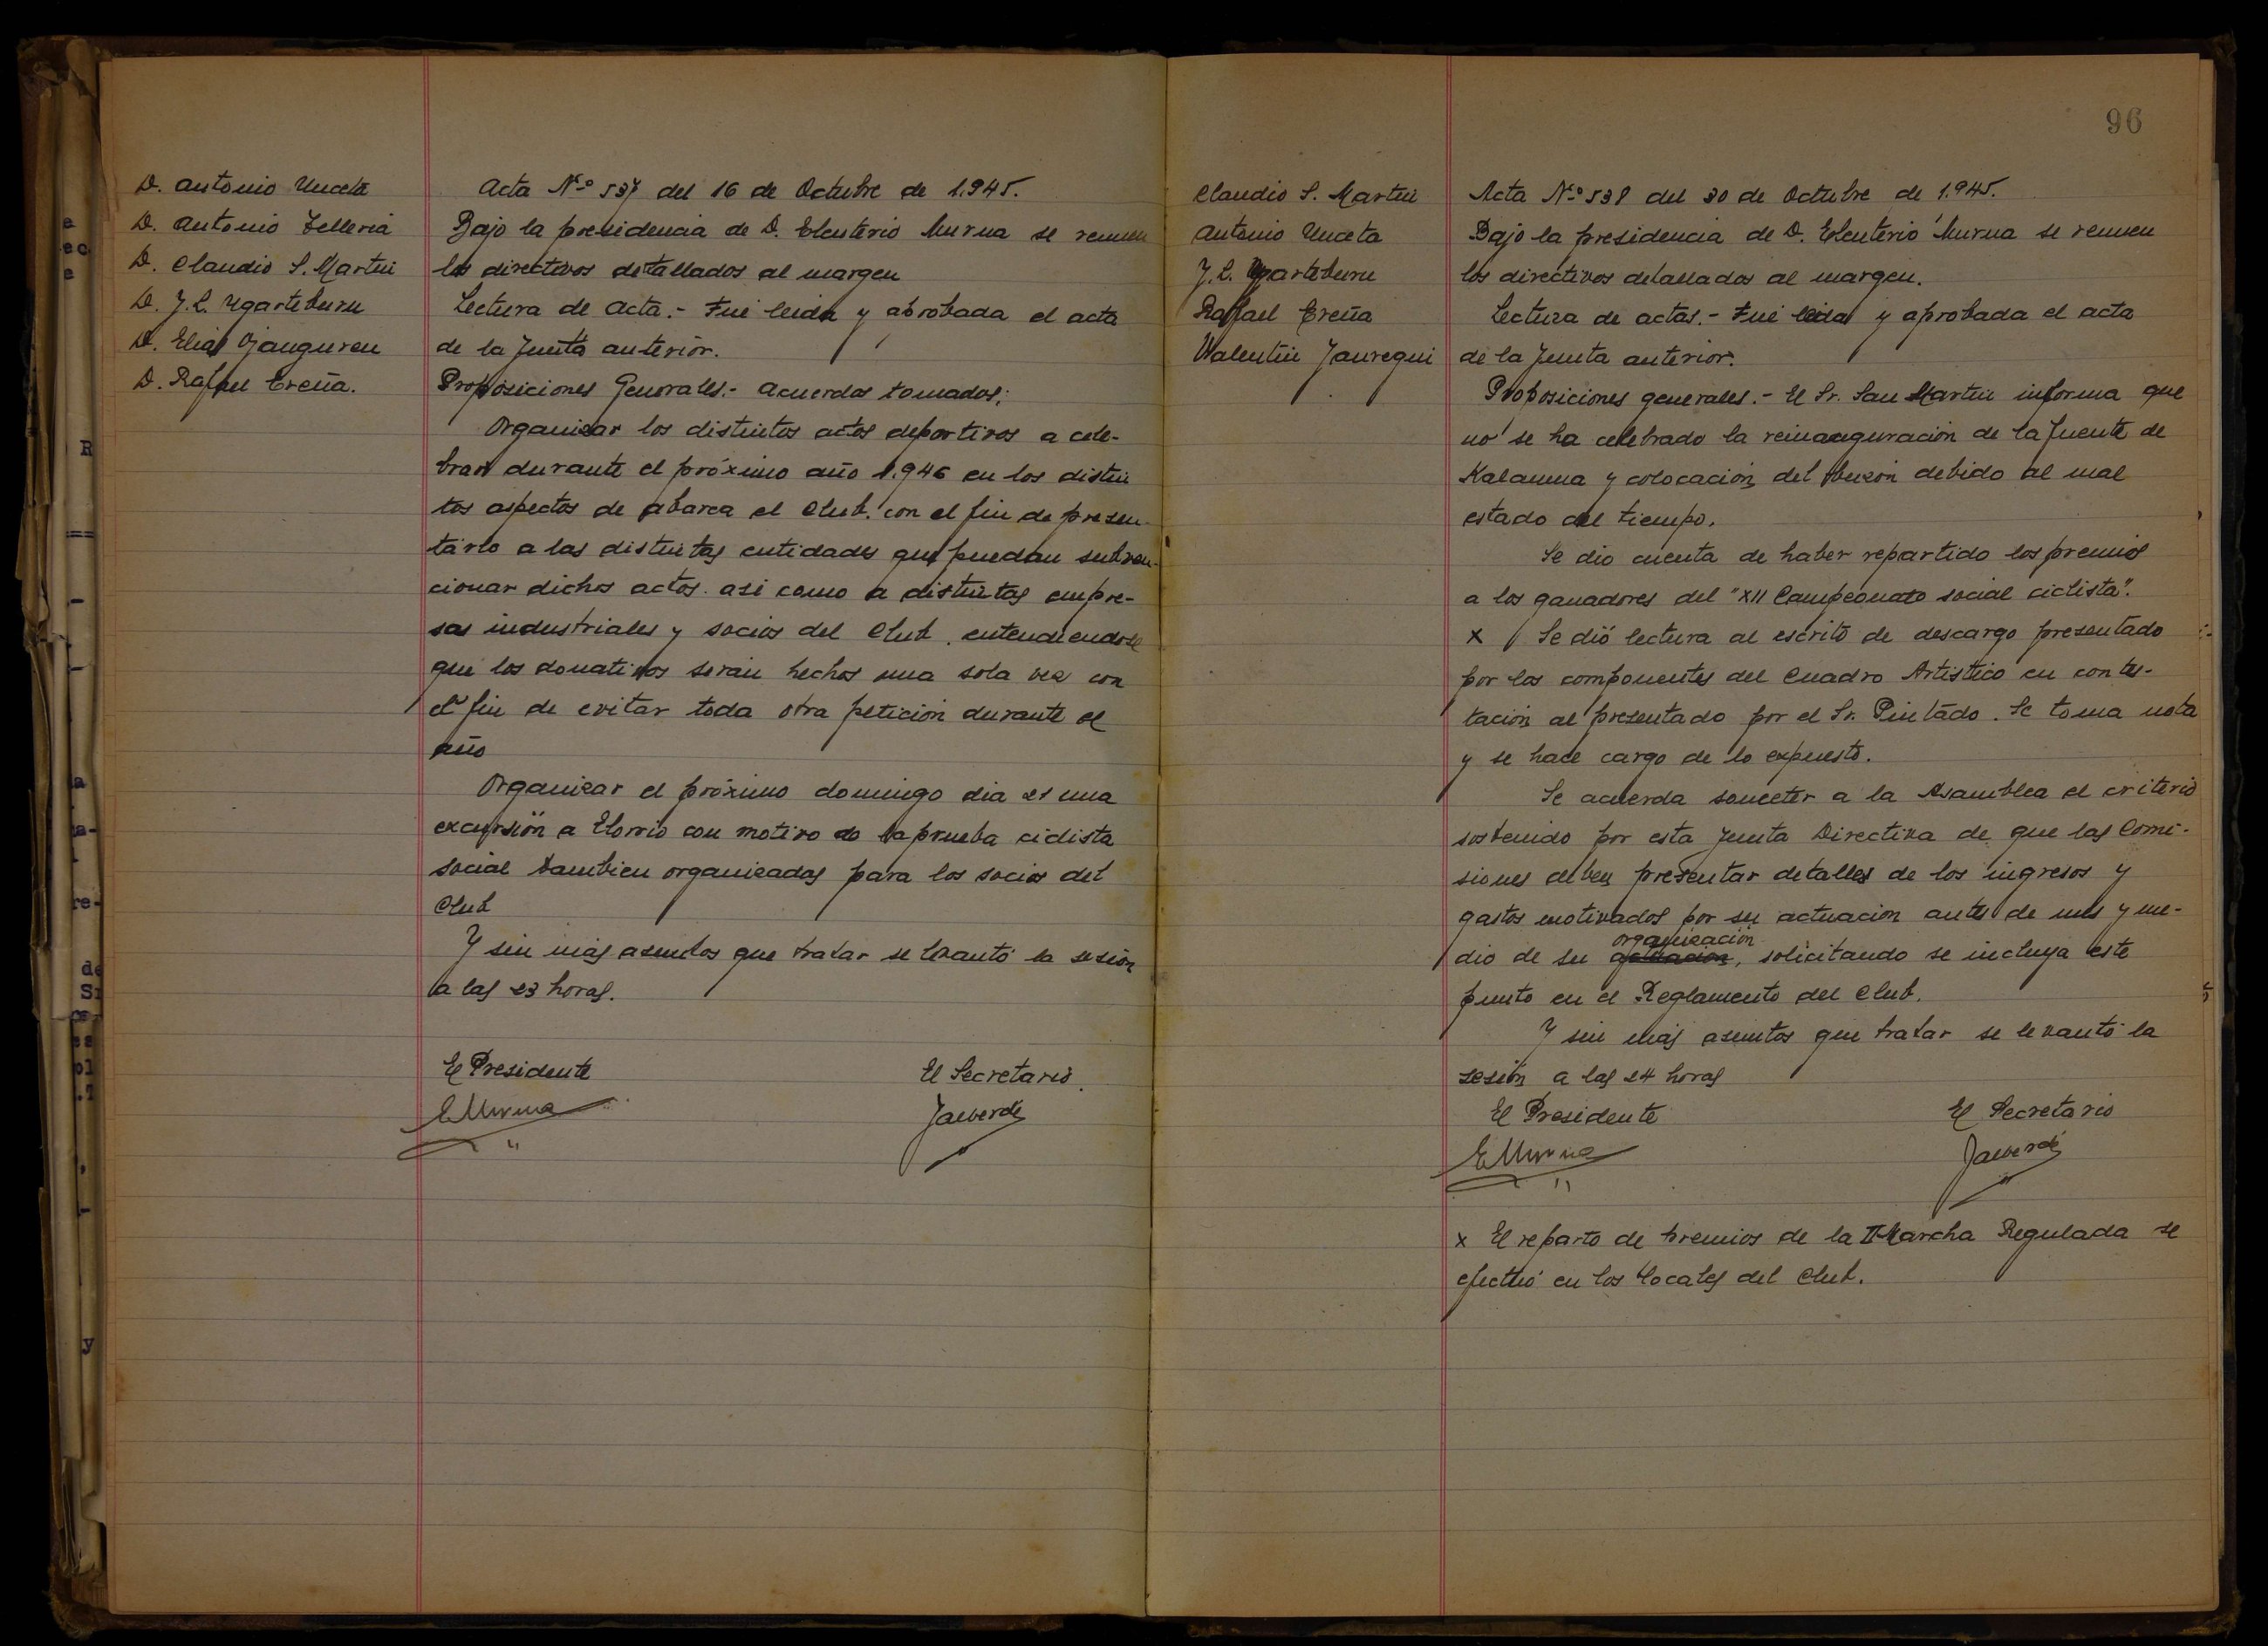 D. Antonio Unceta
D. Antonio Telleria
D. Claudio S. Martin
D. J. L. Ugarteburu
D. Elias Ojanguren
D. Rafael Ereña.
Acta Nº 537 del 16 de Octubre de 1.945.
Bajo la presidencia de D. Eleuterio Murua se reunen
los directivos detallados al margen
Lectura de Acta.- Fué leida y abrobada el acta
de la Junta anterior.
Proposiciones Generales.- Acuerdos tomados:
Organizar los distintos actos deportivos a cele-
brar durante el próximo año 1.946 en los distin
tos aspectos de abarca el Club. con el fin de presen-
tarlo a las distintas entidades que puedan subven-
cionar dichos actos. asi como a distintas empre-
sas industriales y socios del Club. entendiendose
que los donativos serán hechos una sola vez con
el fin de evitar toda otra petición durante el
año
Organizar el próximo domingo dia 21 una
excursión a Elorrio con motivo de la prueba ciclista
social tambien organizadas para los socios del
Club
Y sin más asuntos que tratar se levantó la sesión
a las 23 horas.
El Presidente El Secretario.
EMurua
96
Claudio S. Martin
Antonio Unceta
J. L. Ugarteburu
Rafael Ereña
Valentin Jauregui
Acta Nº 538 del 30 de Octubre de 1.945.
Bajo la presidencia de D. Eleuterio Murua se reunen
los directivos detallados al margen.
Lectura de actas.- Fué leida y aprobada el acta
de la Junta anterior.
Proposiciones generales.- El Sr. San Martin informa que
no se ha celebrado la reinauguración de la fuente de
Kalamua y colocación del buzón debido al mal
estado del tiempo.
Se dio cuenta de haber repartido los premios
a los ganadores del "XII Campeonato social ciclista".
x Se dió lectura al escrito de descargo presentado
por los componentes del Cuadro Artistico en contes-
tación al presentado por el Sr. Pintado. Se toma nota
y se hace cargo de lo expuesto.
Se acuerda someter a la Asamblea el criterio
sostenido por esta Junta Directiva de que las Comi-
siones deben presentar detalles de los ingresos y
gastos motivados por su actuación antes de mes y me-
organización
dio de su actuación, solicitando se incluya este
punto en el Reglamento del Club.
Y sin más asuntos que tratar se levantó la
sesión a las 24 horas
El Presidente El Secretario
EMurua
x El reparto de premios de la II Marcha Regulada se
efectuó en los locales del Club.